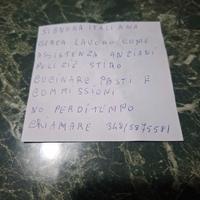 SIGNORA ITALIANA
CERCA LAVORO COME
ASSISTENZA ANZIANI
PULIZIE STIRO
CUCINARE PASTI E
COMMISSIONI
NO PERDITEMPO
CHIAMARE 348/5875581